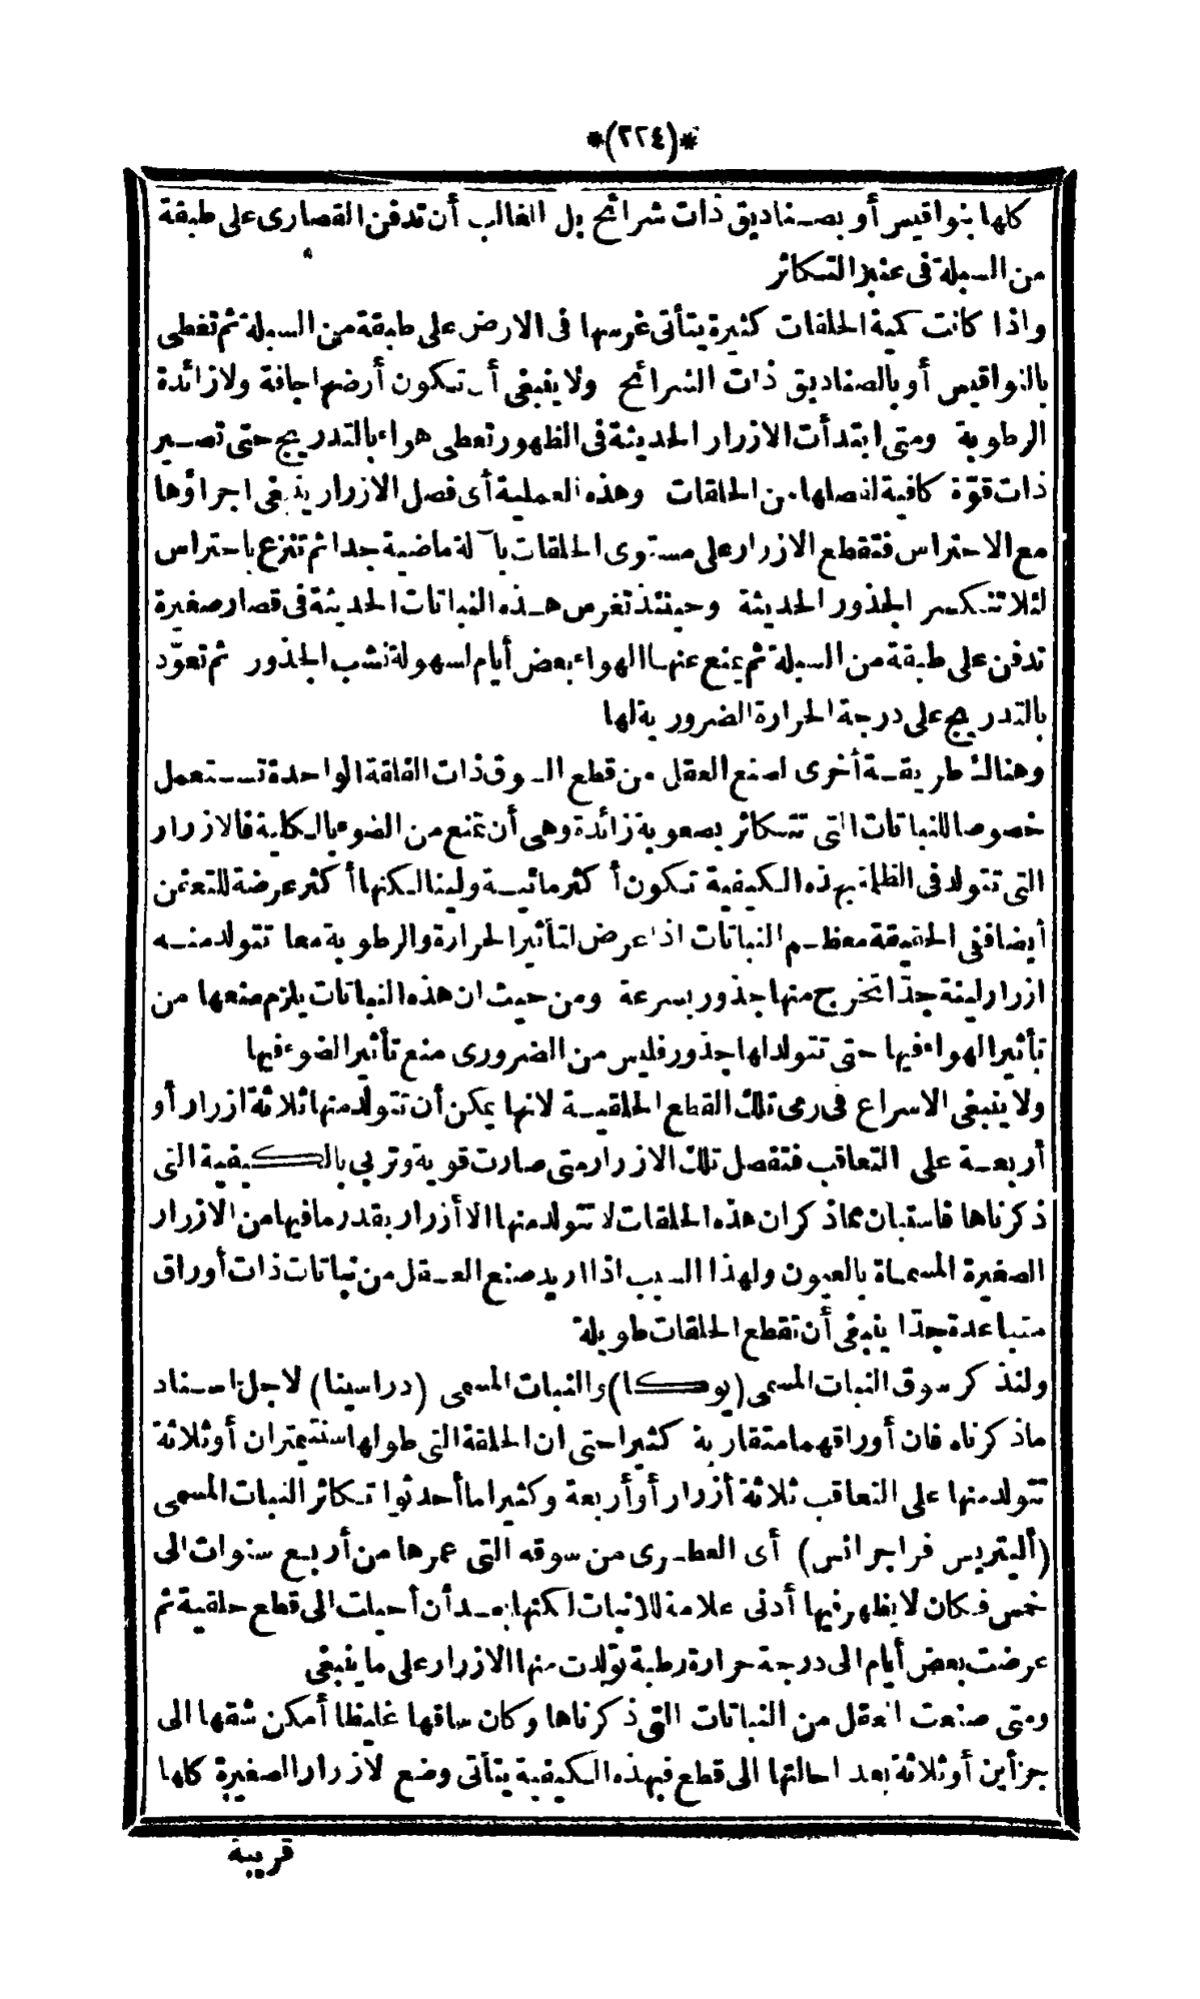 *(٢٢٤)*
كلها بنواقيس أو بصناديق ذات شرائح بل الغالب أن تدفن القصارى على طبقة
من السبلة فى عنبر التكاثر
واذا كانت كمية الحلقات كثيرة يتأتى غرسها فى الارض على طبقة من السبلة ثم تغطى
بالنواقيس أو بالصناديق ذات الشرائح ولا ينبغى أن تكون أرضها جافة ولا زائدة
الرطوبة ومتى ابتدأت الازرار الحديثة فى الظهور تعطى هواء بالتدريج حتى تصير
ذات قوّة كافية لفصلها من الحلقات وهذه العملية أى فصل الازرار ينبغى اجراؤها
مع الاحتراس فتقطع الازرار على مستوى الحلقات بآلة ماضية جدا ثم تنزع باحتراس
لئلا تنكسر الجذور الحديثة وحينئذ تغرس هذه النباتات الحديثة فى قصار صغيرة
تدفن على طبقة من السبلة ثم يمنع عنها الهواء بعض أيام لسهولة نشب الجذور ثم تعوّد
بالتدريج على درجة الحرارة الضرورية لها
وهناك طريقة أخرى لصنع العقل من قطع السوق ذات الفلقة الواحدة تستعمل
خصوصا للنباتات التى تتكاثر بصعوبة زائدة وهى أن تمنع من الضوء بالكلية فالازرار
التى تتولد فى الظلمة بهذه الكيفية تكون أكثر مائية ولينا لكنها أكثر عرضة للتعفن
أيضا ففى الحقيقة معظم النباتات اذا عرض لتأثير الحرارة والرطوبة معا تتولد منه
ازرار لينة جدّا تخرج منها جذور بسرعة ومن حيث ان هذه النباتات يلزم منعها من
تأثير الهواء فيها حتى تتولد لها جذور فليس من الضرورى منع تأثير الضوء فيها
ولا ينبغى الاسراع فى رمى تلك القطع الحلقية لانها يمكن أن تتولد منها ثلاثة ازرار أو
أربعة على التعاقب فتفصل تلك الازرار متى صارت قوية وتربى بالكيفية التى
ذكرناها فاستبان مما ذكر ان هذه الحلقات لا تتولد منها الا أزرار بقدر ما فيها من الازرار
الصغيرة المسماة بالعيون ولهذا السبب اذا اريد صنع العقل من نباتات ذات أوراق
متباعدة جدّا ينبغى أن تقطع الحلقات طويلة
ولنذكر سوق النبات المسمى (يوكا) والنبات المسمى (دراسينا) لاجل اسناد
ما ذكرناه فان أوراقهما متقاربة كثيرا حتى ان الحلقة التى طولها سنتيمتران أو ثلاثة
تتولد منها على التعاقب ثلاثة أزرار أو أربعة وكثيرا ما أحدثوا تكاثر النبات المسمى
(أليتريس فراجرانس) أى العطرى من سوقه التى عمرها من أربع سنوات الى
خمس فكان لا يظهر فيها أدنى علامة للانبات لكنها بعد أن أحيلت الى قطع حلقية ثم
عرضت بعض أيام الى درجة حرارة رطبة تولدت منها الازرار على ما ينبغى
ومتى صنعت العقل من النباتات التى ذكرناها وكان ساقها غليظا أمكن شقها الى
جزأين أو ثلاثة بعد احالتها الى قطع فبهذه الكيفية يتأتى وضع لازرار الصغيرة كلها
قريبة